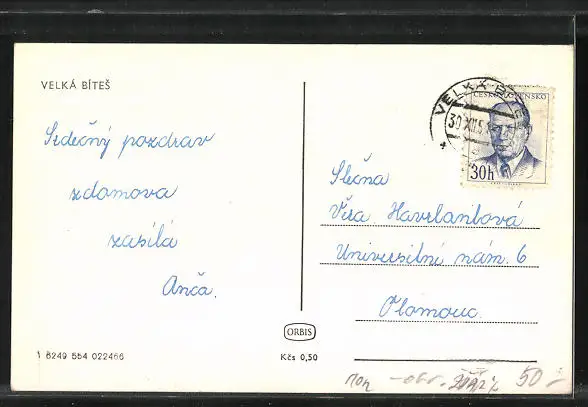 VELKÁ BÍTEŠ
Srdečný pozdrav
zdomova
zasílá
Anča.
VELKÁ
30.XII.5
ČESKOSLOVENSKO
30h
Slečna
Věra Havrlantová
Universitní nám. 6
Olomouc.
ORBIS
Kčs 0,50
8249 554 022466
50.-